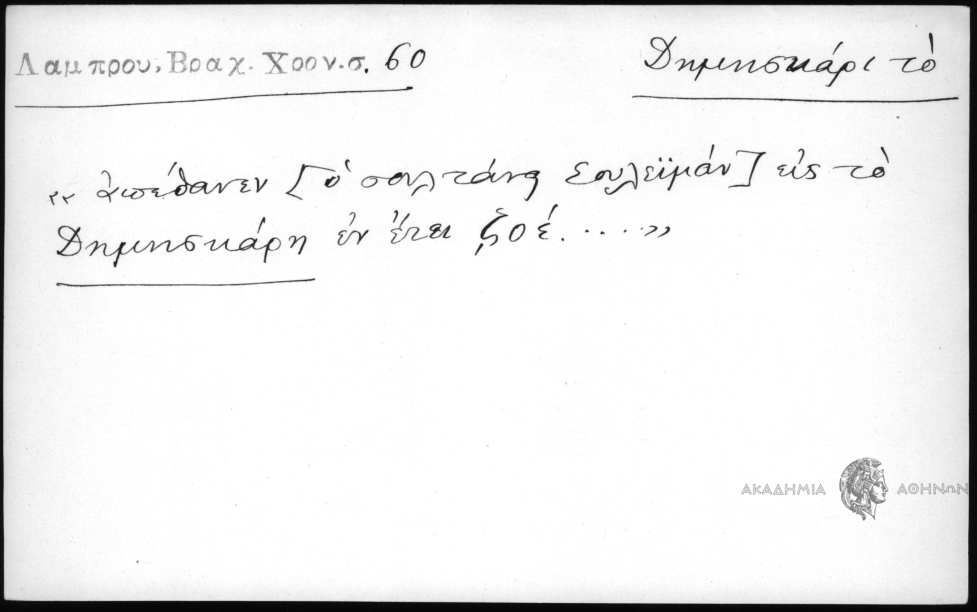 Λαμπρου, Βραχ. Χρον. σ. 60
Δημησκάρι τὸ
«ἀπέθανεν [ὁ σουλτάνος Σουλεϊμάν] εἰς τὸ
Δημησκάρη ἐν ἔτει ζοέ.....»
ΑΚΑΔΗΜΙΑ ΑΘΗΝΩΝ